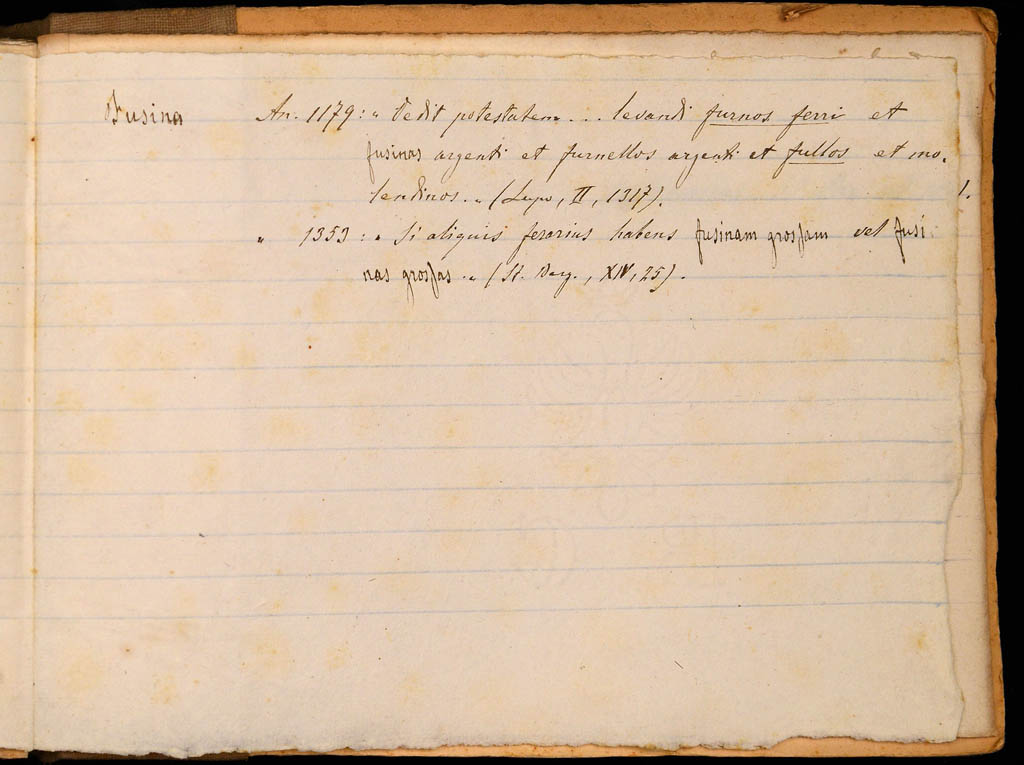 Fusina An. 1179: „ Dedit potestatem ... levandi furnos ferri et
fusinas argenti et furnellos argenti et fullos et mo-
lendinos. „ (Lupo, II, 1317).
„ 1353: „ Si aliquis ferarius habens fusinam grossam vel fusi-
nas grossas. „ (St. Berg., XIV, 25).